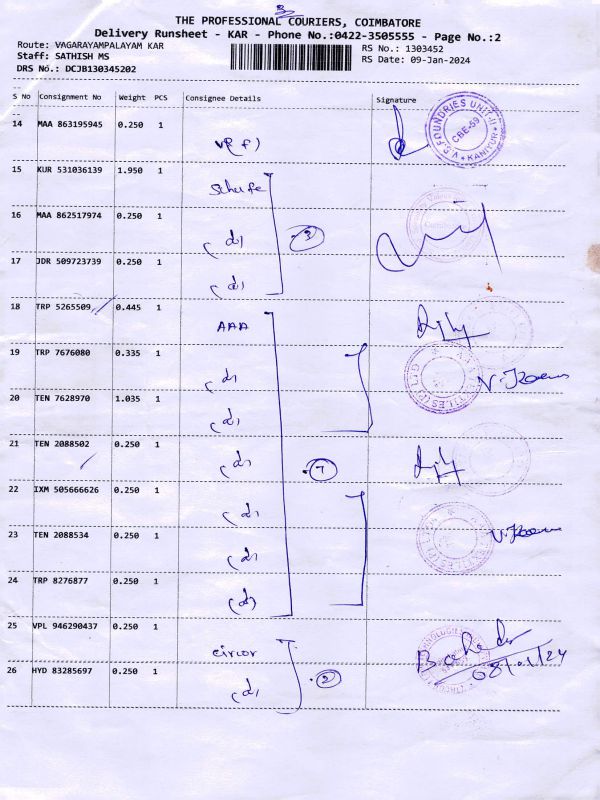 3
THE PROFESSIONAL COURIERS, COIMBATORE
Delivery Runsheet - KAR - Phone No.:0422-3505555 - Page No.:2
Route: VAGARAYAMPALAYAM KAR
RS No.: 1303452
Staff: SATHISH MS
RS Date: 09-Jan-2024
DRS No.: DCJB130345202
S No Consignment No Weight PCS Consignee Details Signature
14 MAA 863195945 0.250 1
V.G.FOUNDRIES UNIT-II CBE-59 KANIYUR
15 KUR 531036139 1.950 1
16 MAA 862517974 0.250 1
(d) 3
17 JDR 509723739 0.250 1
(d)
18 TRP 5265509 0.445 1
AAA
19 TRP 7676080 0.335 1
(d)
20 TEN 7628970 1.035 1
(d)
21 TEN 2088502 0.250 1
(d) 7
22 IXM 505666626 0.250 1
(d)
23 TEN 2088534 0.250 1
(d)
24 TRP 8276877 0.250 1
(d)
25 VPL 946290437 0.250 1
circor
26 HYD 83285697 0.250 1
(d) 2